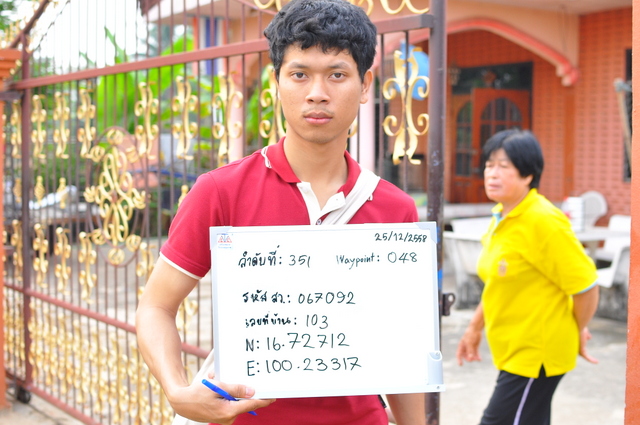 25/12/2558
ลำดับที่: 351 Waypoint: 048
รหัส สว.: 067092
เลขที่บ้าน: 103
N: 16.72712
E: 100.23317